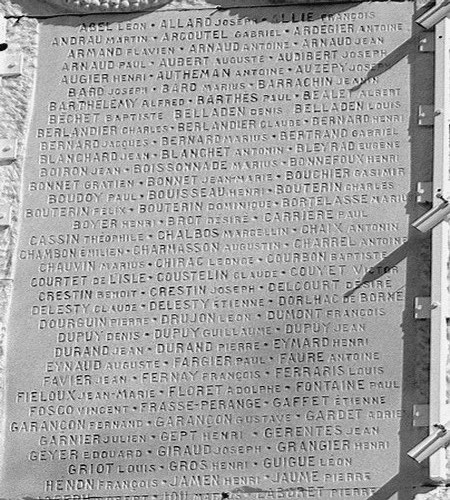 ABEL LÉON • ALLARD JOSEPH • ALLIE FRANÇOIS
ANDRAU MARTIN • ARCOUTEL GABRIEL • ARDEGIER ANTOINE
ARMAND FLAVIEN • ARNAUD ANTOINE • ARNAUD JEAN
ARNAUD PAUL • AUBERT AUGUSTE • AUDIBERT JOSEPH
AUGIER HENRI • AUTHEMAN ANTOINE • AUZEPY JOSEPH
BARD JOSEPH • BARD MARIUS • BARRACHIN JEANIN
BARTHELEMY ALFRED • BARTHES PAUL • BEALET ALBERT
BECHET BAPTISTE BELLADEN DENIS BELLADEN LOUIS
BERLANDIER CHARLES • BERLANDIER CLAUDE • BERNARD HENRI
BERNARD JACQUES • BERNARD MARIUS • BERTRAND GABRIEL
BLANCHARD JEAN • BLANCHET ANTONIN • BLEYRAD EUGÈNE
BOIRON JEAN • BOISSONNADE MARIUS • BONNEFOUX HENRI
BONNET GRATIEN • BONNET JEAN-MARIE • BOUCHIER CASIMIR
BOUDOY PAUL • BOUISSEAU HENRI • BOUTERIN CHARLES
BOUTERIN FÉLIX • BOUTERIN DOMINIQUE • BORTELASSE MARIUS
BOYER HENRI • BROT DÉSIRÉ • CARRIÈRE PAUL
CASSIN THÉOPHILE • CHALBOS MARCELLIN • CHAIX ANTONIN
CHAMBON ÉMILIEN • CHARMASSON AUGUSTIN • CHARREL ANTOINE
CHAUVIN MARIUS • CHIRAC LÉONCE • COURBON BAPTISTE
COURTET DE LISLE • COUSTELIN CLAUDE • COUYET VICTOR
CRESTIN BENOIT • CRESTIN JOSEPH • DELCOURT DÉSIRÉ
DELESTY CLAUDE • DELESTY ÉTIENNE • DORLHAC DE BORNE
DOURGUIN PIERRE • DRUJON LÉON • DUMONT FRANÇOIS
DUPUY DENIS • DUPUY GUILLAUME • DUPUY JEAN
DURAND JEAN • DURAND PIERRE • EYMARD HENRI
EYNAUD AUGUSTE • FARGIER PAUL • FAURE ANTOINE
FAVIER JEAN • FERNAY FRANÇOIS • FERRARIS LOUIS
FIELOUX JEAN-MARIE • FLORET ADOLPHE • FONTAINE PAUL
FOSCO VINCENT • FRASSE-PERANGE • GAFFET ÉTIENNE
GARANÇON FERNAND • GARANÇON GUSTAVE • GARDET ADRIEN
GARNIER JULIEN • GEPT HENRI • GERENTES JEAN
GEYER EDOUARD • GIRAUD JOSEPH • GRANGIER HENRI
GRIOT LOUIS • GROS HENRI • GUIGUE LÉON
HENDN FRANÇOIS • JAMEN HENRI • JAUME PIERRE
LABORET PIERRE